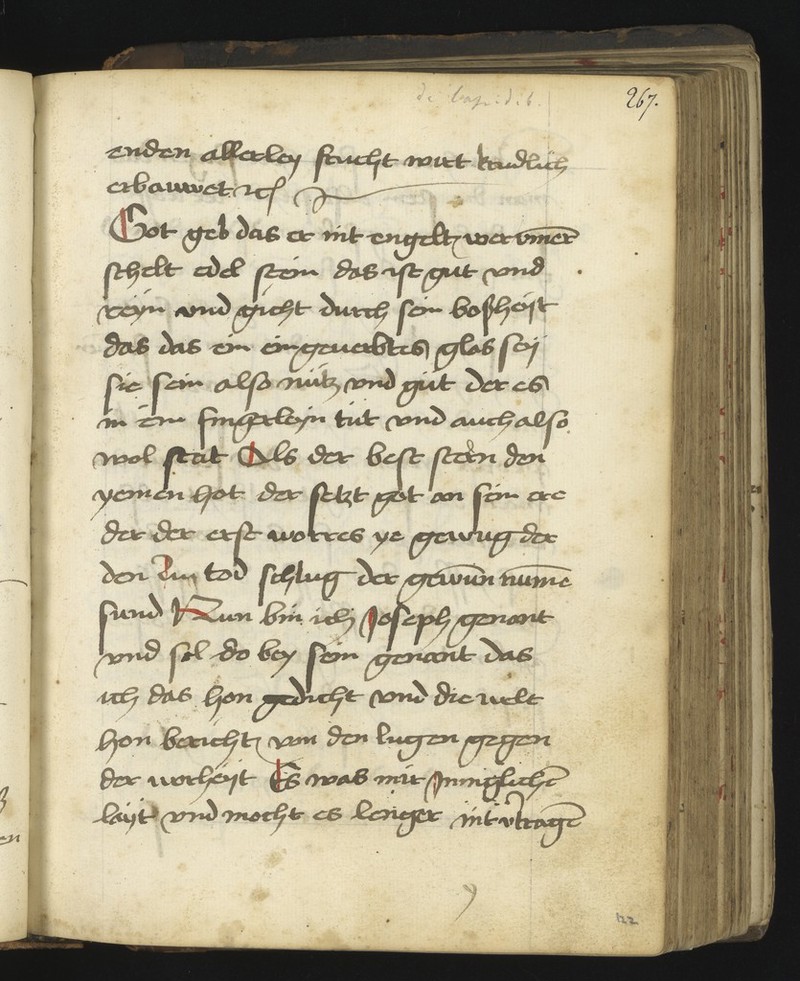 de lapidib.
267.
enden allerley frucht wirt kindlich
erbauwet etc
Got geb das er nit engeltz wer ymer
schelt edel stein das ist gut vnd
reyn vnd gicht durch sein boßheyt
das das ein eingeuerbtes glas sey
sie sein also nütz vnd güt der es
in ein fingerleyn tüt vnd auch also
wol stat Als der best stern den
yemen hot der setzt got an sein ere
der der erst wortes ye gewug der
den tod schlug der gewün nume
sund Nun bin ich Joseph genant
vnd sol do bey sein genant das
ich das hon gedicht vnd die welt
hon bericht von den lugen gegen
der worheyt Es was mir Jnniglichē
layt vnd mocht es lenger nit vtragē
122